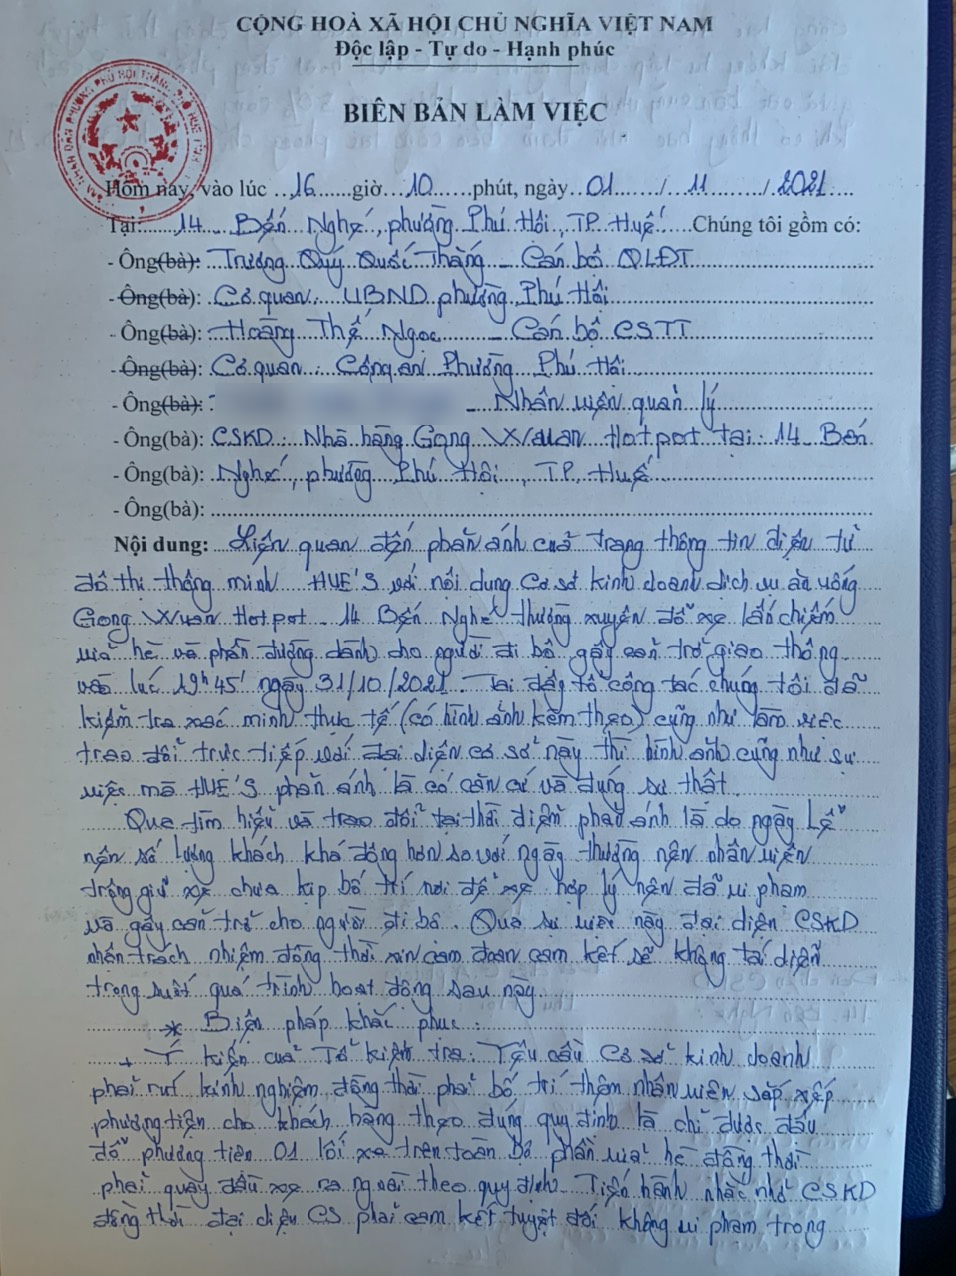 CỘNG HOÀ XÃ HỘI CHỦ NGHĨA VIỆT NAM
Độc lập - Tự do - Hạnh phúc
BIÊN BẢN LÀM VIỆC
Hôm nay, vào lúc 16 giờ 10 phút, ngày 01 / 11 / 2021
Tại: 14 Bến Nghé, phường Phú Hội, TP. Huế Chúng tôi gồm có:
- Ông(bà): Trương Quý Quốc Thắng - Cán bộ QLĐT
- Ông(bà): Cơ quan: UBND phường Phú Hội
- Ông(bà): Hoàng Thế Ngọc - Cán bộ CSTT
- Ông(bà): Cơ quan: Công an Phường Phú Hội
- Ông(bà): - Nhân viên quản lý
- Ông(bà): CSKD: Nhà hàng Gong Wuan Hotpot tại: 14 Bến
- Ông(bà): Nghé, phường Phú Hội, TP. Huế
- Ông(bà):
Nội dung: Liên quan đến phản ánh của trang thông tin điện tử
đô thị thông minh HUE'S với nội dung Cơ sở kinh doanh dịch vụ ăn uống
Gong Wuan Hotpot - 14 Bến Nghé thường xuyên đỗ xe lấn chiếm
vỉa hè và phần đường dành cho người đi bộ gây cản trở giao thông
vào lúc 19h45' ngày 31/10/2021. Tại đây tổ công tác chúng tôi đã
kiểm tra xác minh thực tế (có hình ảnh kèm theo) cũng như làm việc
trao đổi trực tiếp với đại diện cơ sở này thì hình ảnh cũng như sự
việc mà HUE'S phản ánh là có căn cứ và đúng sự thật.
Qua tìm hiểu và trao đổi tại thời điểm phản ánh là do ngày Lễ
nên số lượng khách khá đông hơn so với ngày thường nên nhân viên
trông giữ xe chưa kịp bố trí nơi để xe hợp lý nên đã vi phạm
và gây cản trở cho người đi bộ. Qua sự việc này đại diện CSKD
nhận trách nhiệm đồng thời xin cam đoan cam kết sẽ không tái diễn
trong suốt quá trình hoạt động sau này.
* Biện pháp khắc phục:
+ Ý kiến của Tổ kiểm tra: Yêu cầu Cơ sở kinh doanh
phải rút kinh nghiệm, đồng thời phải bố trí thêm nhân viên sắp xếp
phương tiện cho khách hàng theo đúng quy định là chỉ được đậu
đỗ phương tiện 01 lối xe trên toàn bộ phần vỉa hè đồng thời
phải quay đầu xe ra ngoài theo quy định. Tiến hành nhắc nhở CSKD
đồng thời đại diện CS phải cam kết tuyệt đối không vi phạm trong